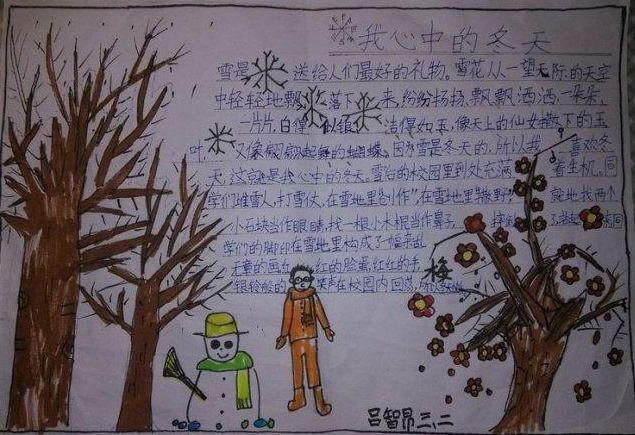 我心中的冬天
雪是 送给人们最好的礼物。雪花从一望无际的天空
中轻轻地飘 落下 来,纷纷扬扬,飘飘洒洒,一朵朵,
一片片,白得 似银 洁得如玉,像天上的仙女撒下的玉
叶, 又像翩翩起舞的蝴蝶。因为雪是冬天的,所以我 喜欢冬
天,这就是我心中的冬天。雪白的校园里到处充满 着生机。同
学们堆雪人,打雪仗,在雪地里创作",在雪地里撒野? 就地找两个
小石块当作眼睛,找一根小木棍当作鼻子,
学们的脚印在雪地里构成了幅杂乱
无章的画 红的脸蛋,红红的手,
银铃般的 笑声在校园内回荡,
梅
吕智昂三、二